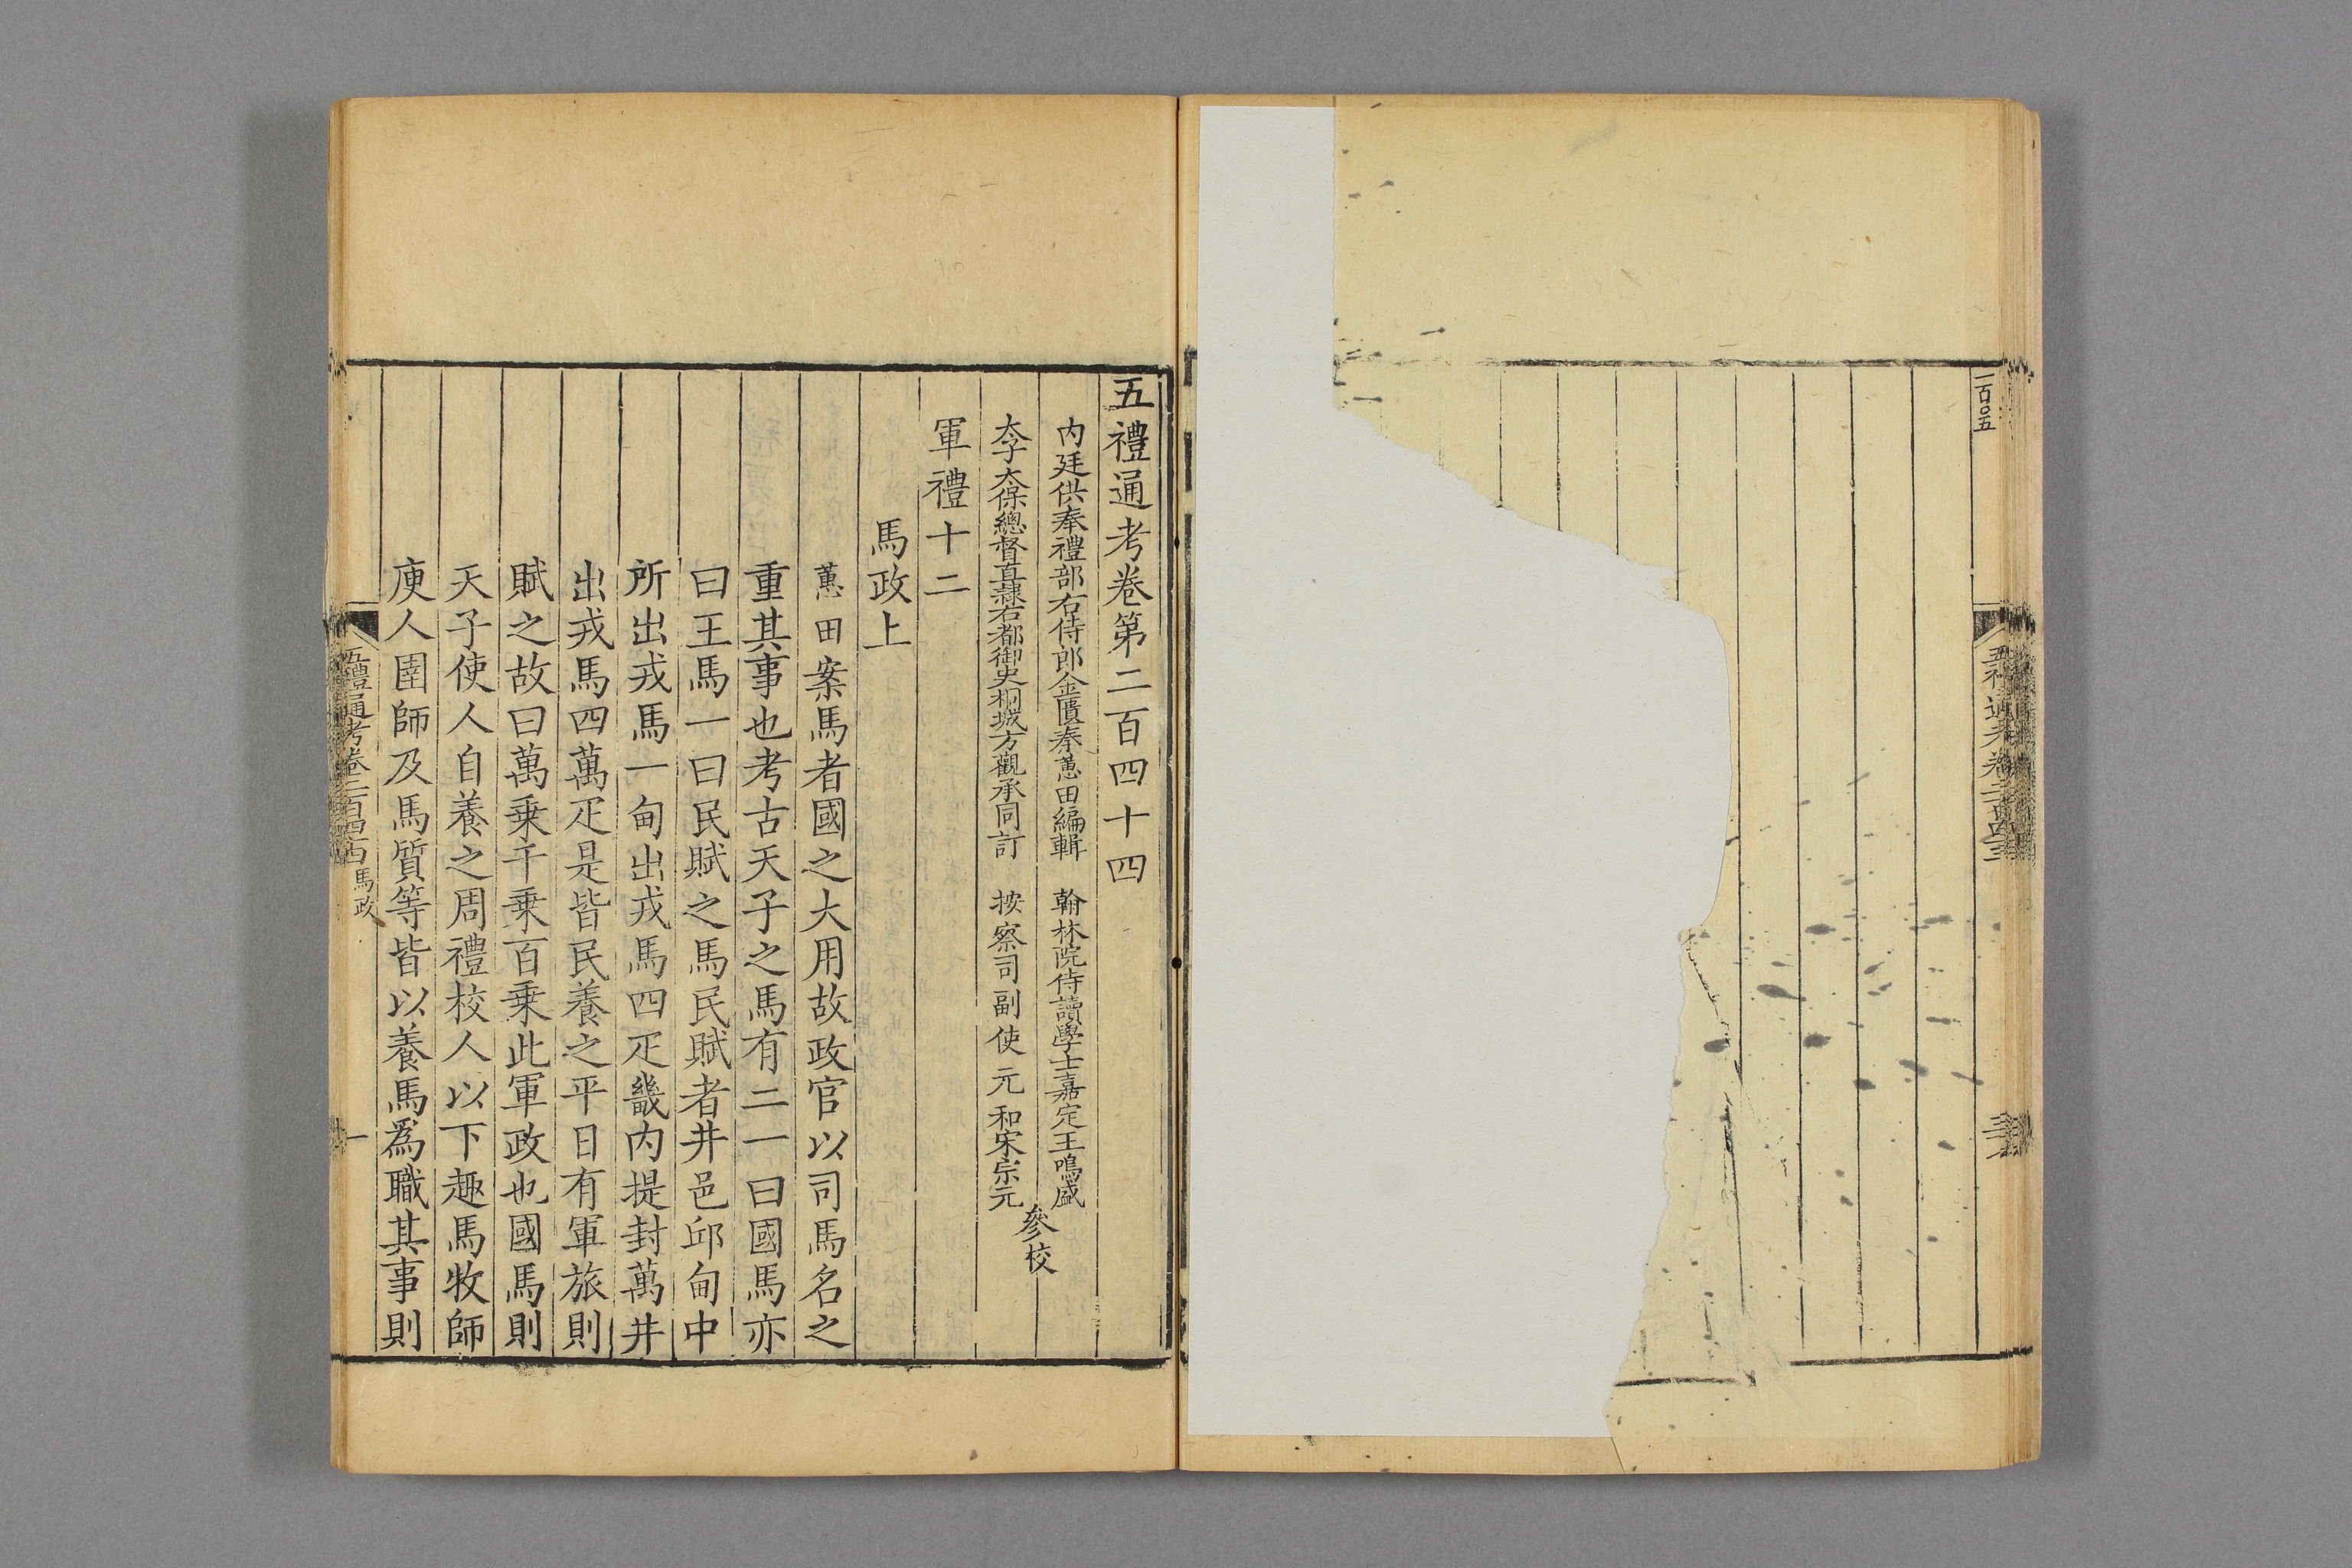 一百〇五
五禮通考卷第二百四十四
内廷供奉禮部右侍郎金匱秦蕙田編輯 翰林院侍讀學士嘉定王鳴盛
太子太保總督直隸右都御史桐城方觀承同訂 按察司副使元和宋宗元
參校
軍禮十二
馬政上
蕙田案馬者國之大用故政官以司馬名之
重其事也考古天子之馬有二一曰國馬亦
曰王馬一曰民賦之馬民賦者井邑邱甸中
所出戎馬一甸出戎馬四疋畿内提封萬井
出戎馬四萬疋是皆民養之平日有軍旅則
賦之故曰萬乗千乗百乗此軍政也國馬則
天子使人自養之周禮校人以下趣馬牧師
庾人圉師及馬質等皆以養馬爲職其事則
五禮通考卷二百四十四 馬政
一